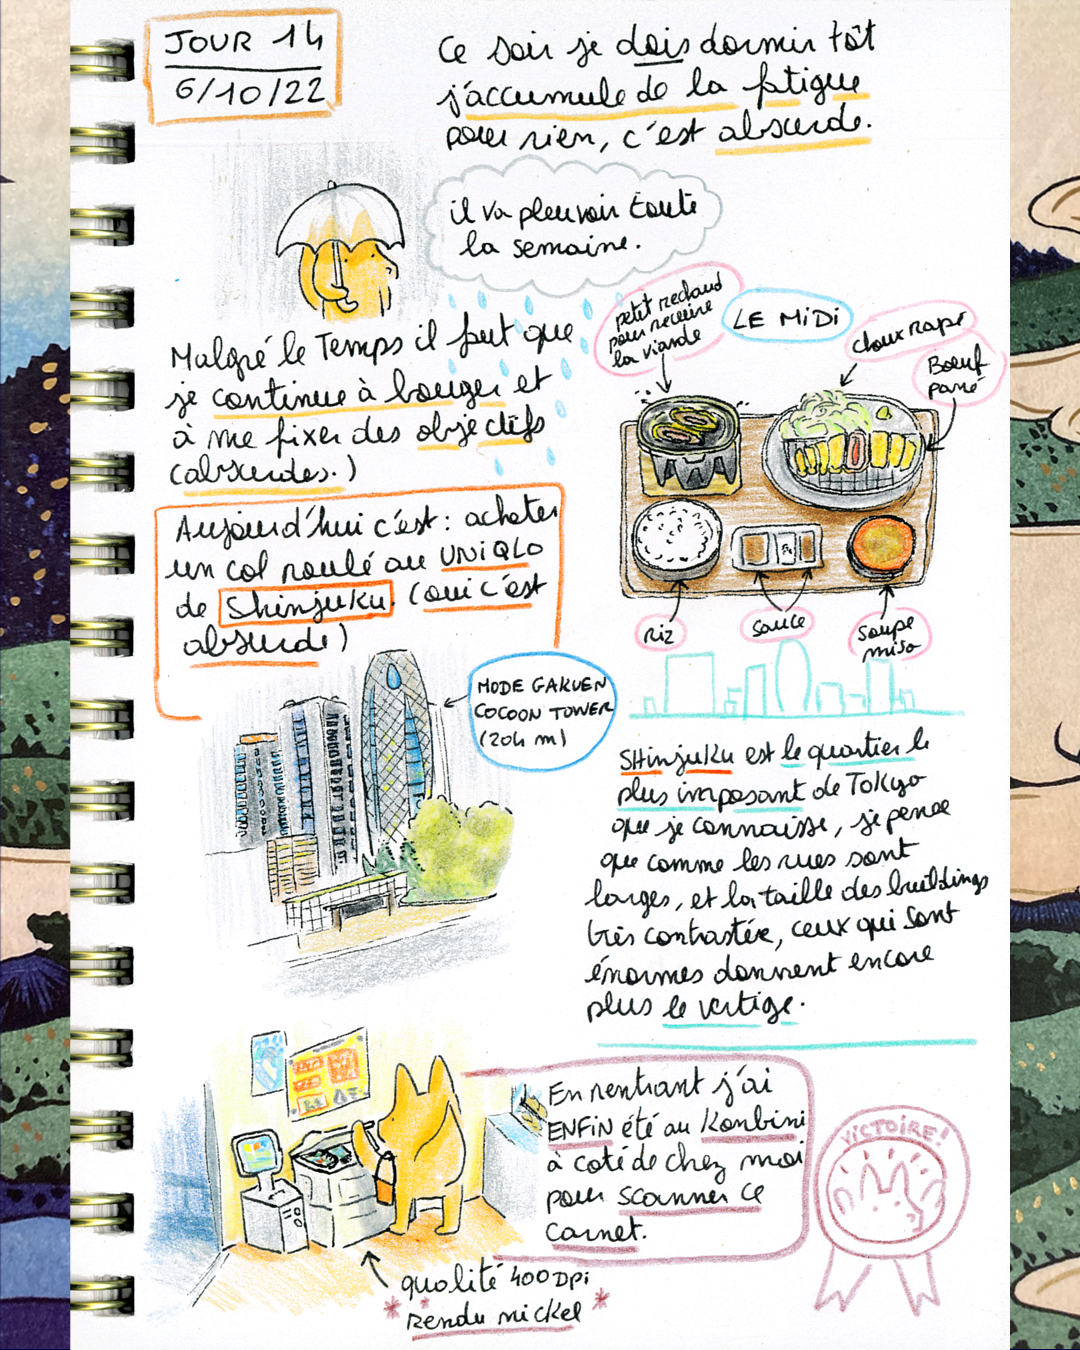 JOUR 14
6/10/22
Ce soir je dois dormir tôt
j'accumule de la fatigue
pour rien, c'est absurde.
il va pleuvoir toute
la semaine.
Malgré le Temps il faut que
je continue à bouger et
à me fixer des objectifs
(absurdes.)
Aujourd'hui c'est : acheter
un col roulé au UNIQLO
de Shinjuku. (oui c'est
absurde)
MODE GAKUEN
COCOON TOWER
(204 m)
petit rechaud
pour recuire
la viande
LE MiDi
choux Rapé
Boeuf
pané
riz
sauce
soupe
miso
SHinjuku est le quartier le
plus imposant de Tokyo
que je connaisse, je pense
que comme les rues sont
larges, et la taille des buildings
très contrastée, ceux qui sont
énormes donnent encore
plus le vertige.
En rentrant j'ai
ENFiN été au Konbini
à coté de chez moi
pour scanner ce
carnet.
VICTOIRE!
qualité 400 DPi
* Rendu nickel *